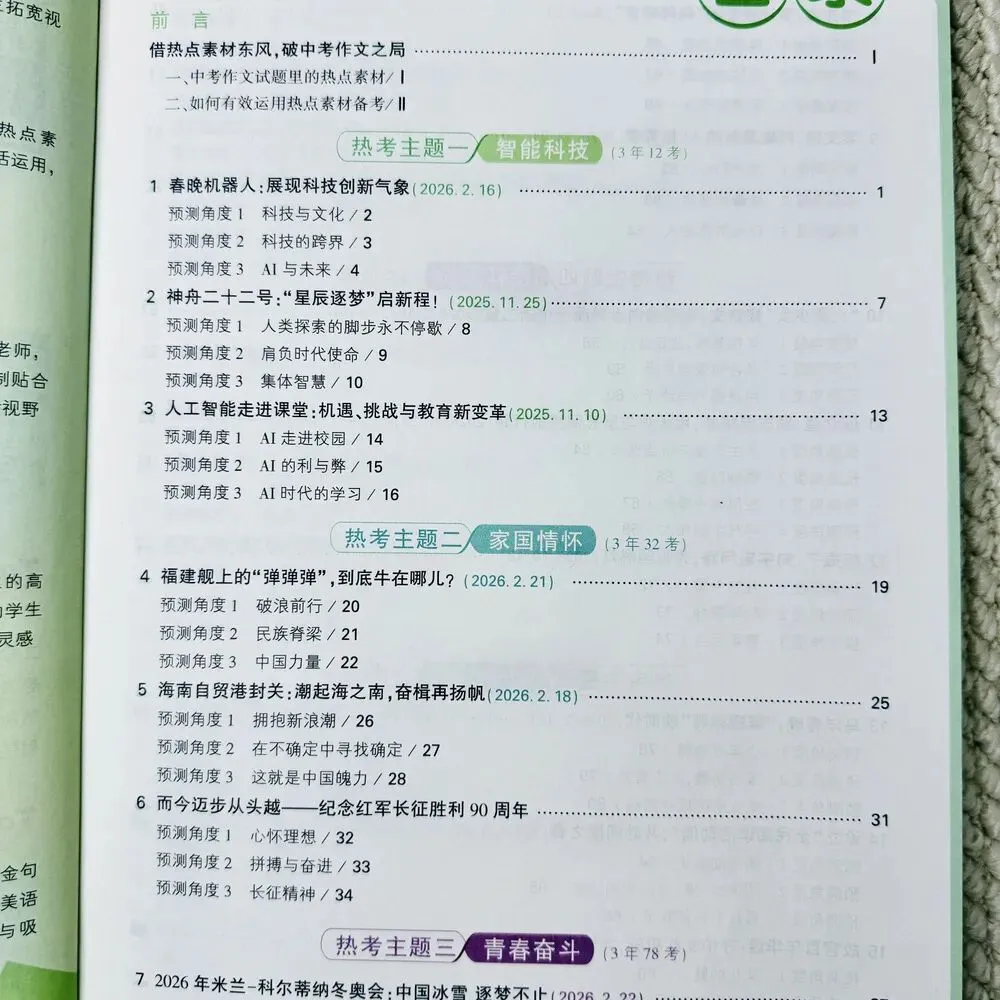 三拓宽视
热点素
活运用,
老师,
制贴合
视野
的高
学生
灵感
金句
美语
与吸
前 言
借热点素材东风,破中考作文之局 Ⅰ
一、中考作文试题里的热点素材/Ⅰ
二、如何有效运用热点素材备考/Ⅱ
热考主题一 智能科技 (3年12考)
1 春晚机器人:展现科技创新气象(2026.2.16) 1
预测角度1 科技与文化/2
预测角度2 科技的跨界/3
预测角度3 AI与未来/4
2 神舟二十二号:“星辰逐梦”启新程!(2025.11.25) 7
预测角度1 人类探索的脚步永不停歇/8
预测角度2 肩负时代使命/9
预测角度3 集体智慧/10
3 人工智能走进课堂:机遇、挑战与教育新变革(2025.11.10) 13
预测角度1 AI走进校园/14
预测角度2 AI的利与弊/15
预测角度3 AI时代的学习/16
热考主题二 家国情怀 (3年32考)
4 福建舰上的“弹弹弹”,到底牛在哪儿?(2026.2.21) 19
预测角度1 破浪前行/20
预测角度2 民族脊梁/21
预测角度3 中国力量/22
5 海南自贸港封关:潮起海之南,奋楫再扬帆(2026.2.18) 25
预测角度1 拥抱新浪潮/26
预测角度2 在不确定中寻找确定/27
预测角度3 这就是中国魄力/28
6 而今迈步从头越——纪念红军长征胜利90周年 31
预测角度1 心怀理想/32
预测角度2 拼搏与奋进/33
预测角度3 长征精神/34
热考主题三 青春奋斗 (3年78考)
7 2026年米兰-科尔蒂纳冬奥会:中国冰雪 逐梦不止(2026.2.22)